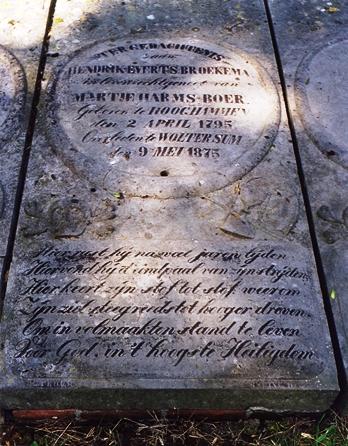 TER GEDACHTENIS
aan
HENDRIK EVERTS BROEKEMA
in leven echtgenoot van
MARTJE HARMS BOER.
Geboren te HOOGHAMMEN
den 2 APRIL 1795
Overleden te WOLTERSUM
den 9 MEI 1875
Hier rust hij na zooveel jaren lijden
Hier vond hij 't eindpaal van zijn strijden
Hier keert zijn stof tot stof weerom
Zijn ziel steeg reeds tot hooger dreven
Om in volmaakten stand te leven
Voor God, in 't hoogste Heiligdom